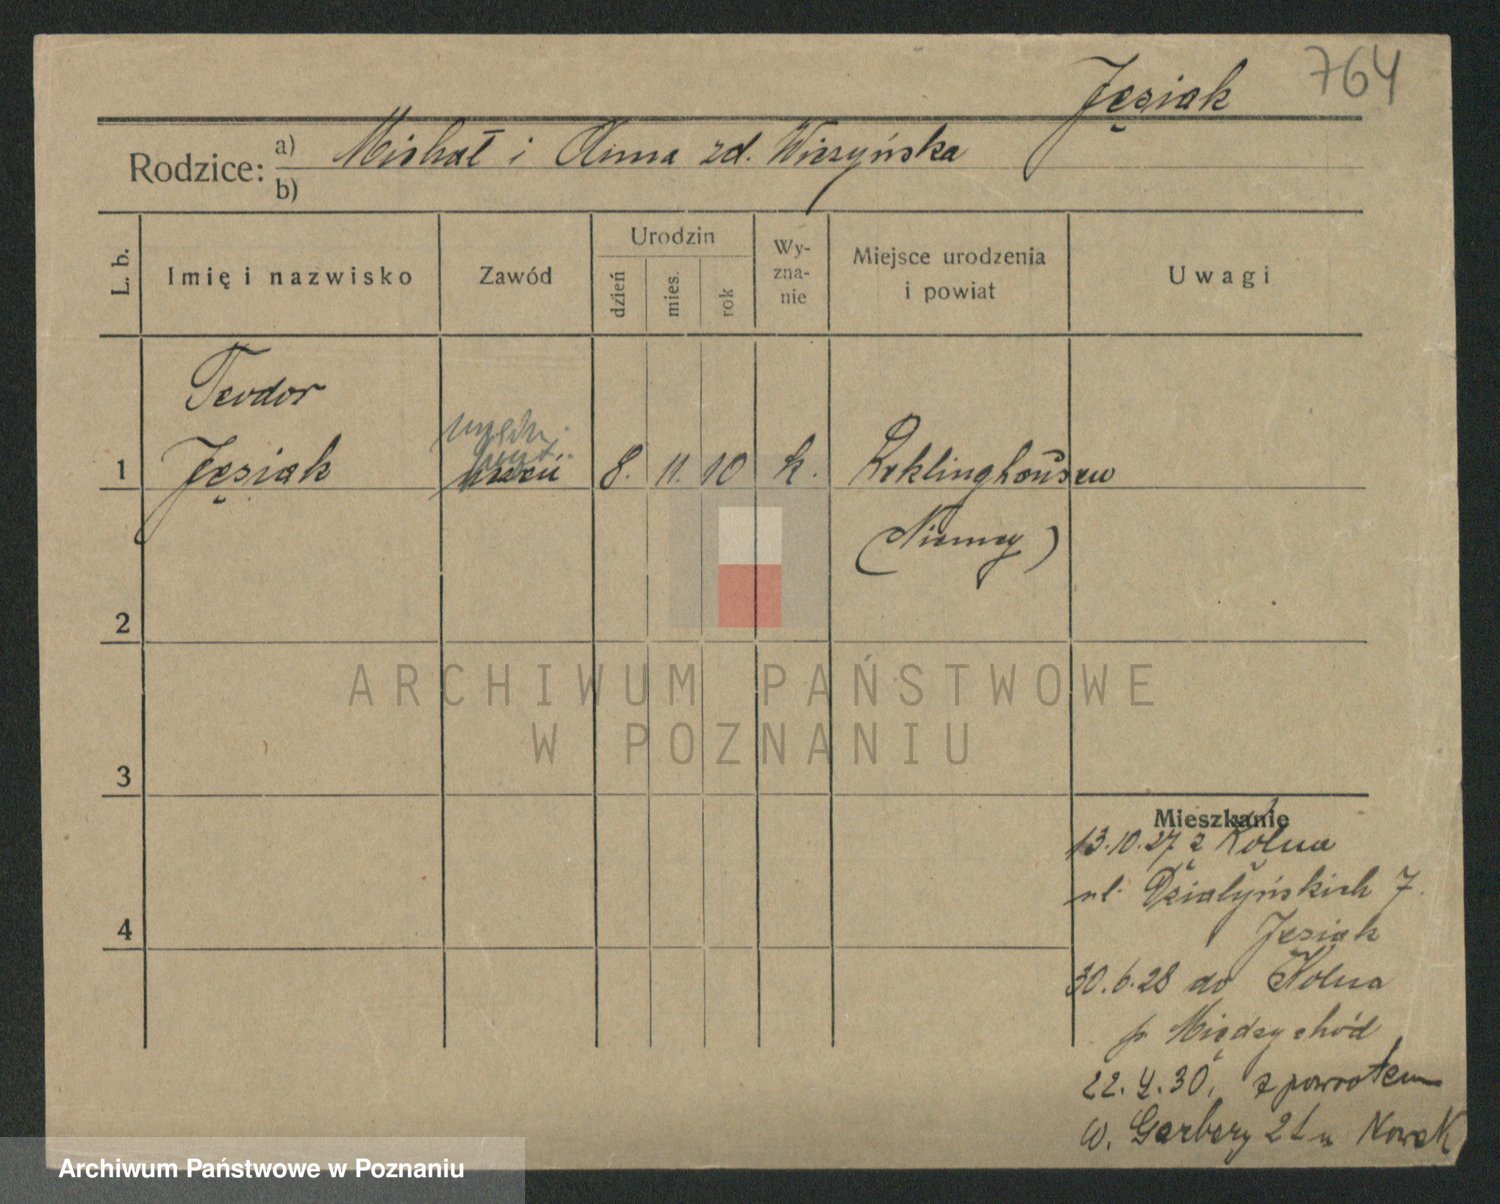 Jęsiak 764
Rodzice: a) Michał i Anna zd. Wiczyńska
b)
L. b. Imię i nazwisko Zawód Urodzin dzień mies. rok Wy-zna-nie Miejsce urodzenia i powiat Uwagi
Teodor
1 Jęsiak uczeń 8. 11. 10 k. Reklinghausen
(Niemcy)
2
ARCHIWUM PAŃSTWOWE
W POZNANIU
3
Mieszkanie
13.10.27 z Kolna
ul. Działyńskich 7.
4
Jęsiak
30.6.28 do Kolna
p. Międzychód
22.4.30, z powrotem
W. Garbary 21 u Nowak
Archiwum Państwowe w Poznaniu